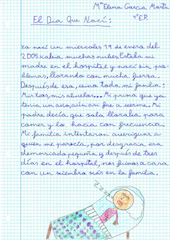 Mª Elena García Marta
4º E.P.
El Día Que Nací:
Yo nací un miércoles 19 de enero del
2005. había muchas nubes. Estaba mi
madre en el hospital y nací sin pro-
blemas, llorando con mucha fuerza.
Después de eso, vino toda mi familia:
Mis tíos, mis abuelos... Mi prima que ya
tenía un año, vino a verme. Mi
padre decía, que solo lloraba para
comer y lo hacía con frecuencia.
Mi familia intentaron averiguar a
quien me parecía, por desgracia era
demasiado pequeña y después de tres
días en el hospital, nos fuimos a casa
con un miembro más en la familia.